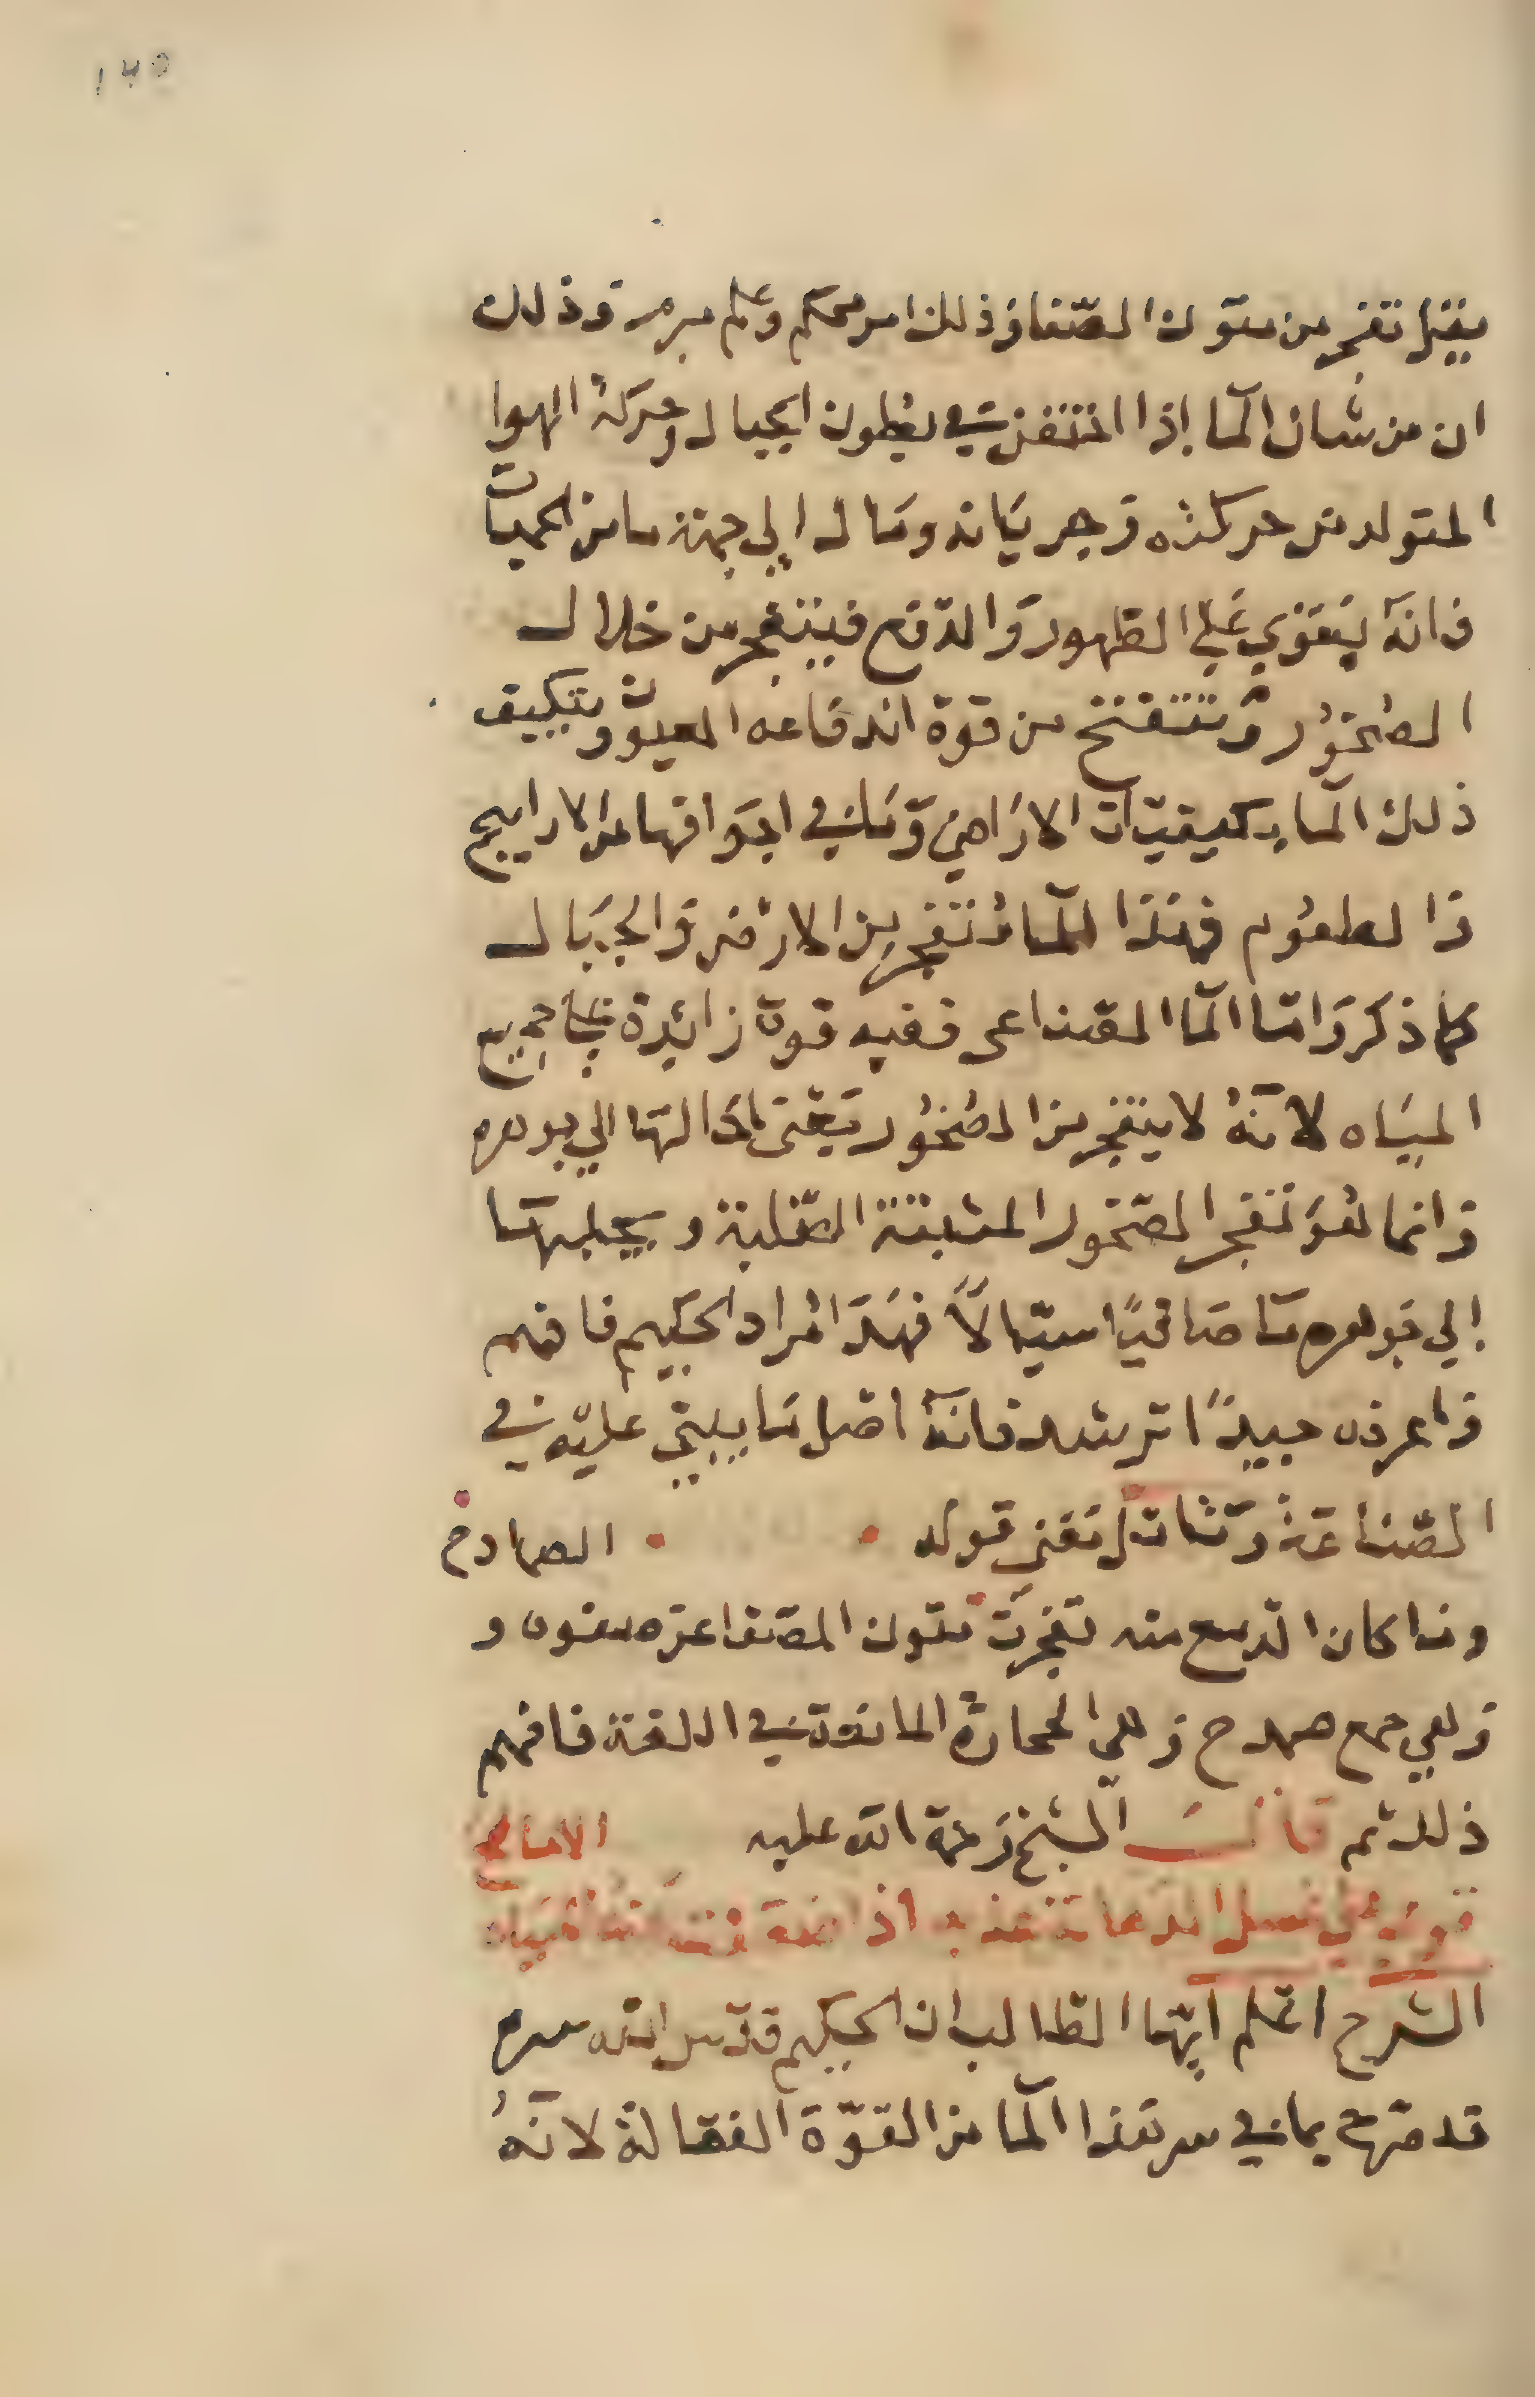 ١٧٥
تفجر من متون الصفا وذلك امر محكم وعلم مبرم وذلك
ان من شان الما إذا اختنق في بطون الجبال وحركة الهوا
المتولد من حركته وجريانه ومال إلي جهة ما من الجهات
فانه يقوي علي الظهور والدفع فيتفجر من خلال
الصخور وتنفتح من قوة اندفاعه العيون ويتكيف
ذلك الما بكيفيات الاراضي وما في اجوافها من الاراييج
والطعوم فهذا الما تتفجر من الارض والجبال
كما ذكر واما الما الصناعى ففيه قوة زائدة علي جميع
المياه لانه لا ينفجر من الصخور يعنى احالتها الي جوهره
وانما هو تفجر الصخور المثبتة الصلبة ويحيلها
إلي جوهره ما صافيًا سيّالًا فهذا مراد الحكيم فافهم
واعرف جيدًا ترشد فانه اصل ما يبتني عليه في
الصناعة وتامل معني قوله الصمادح
وما كان الدمع منه تفجرت متون الصفا عنه
وهي جمع صمدح وهي الحجارة في اللغة فافهم
ذلك ثم قال الشيخ رحمة الله عليه
الشرح اعلم أيها الطالب ان الحكيم قدس الله سره
قد صرح بما في سر هذا الما من القوّة الفعالة لانه